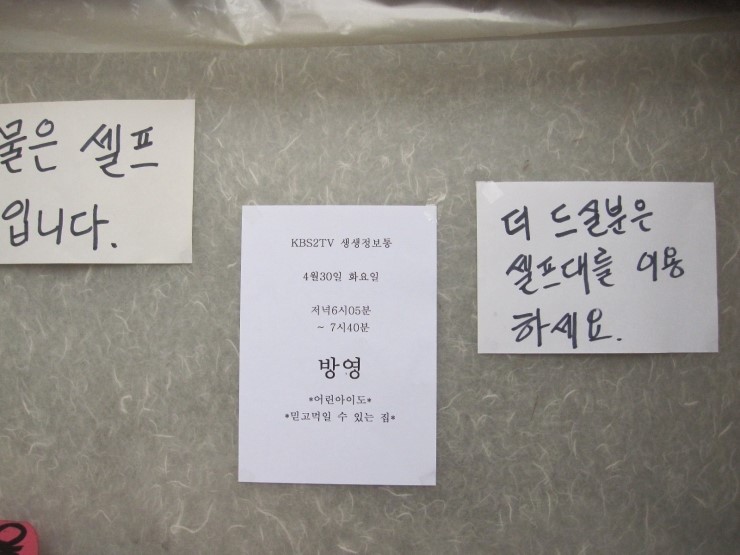 물은 셀프
입니다.
KBS2TV 생생정보통
4월30일 화요일
저녁6시05분
~ 7시40분
방영
*어린아이도*
*믿고먹일 수 있는 집*
더 드실분은
셀프대를 이용
하세요.